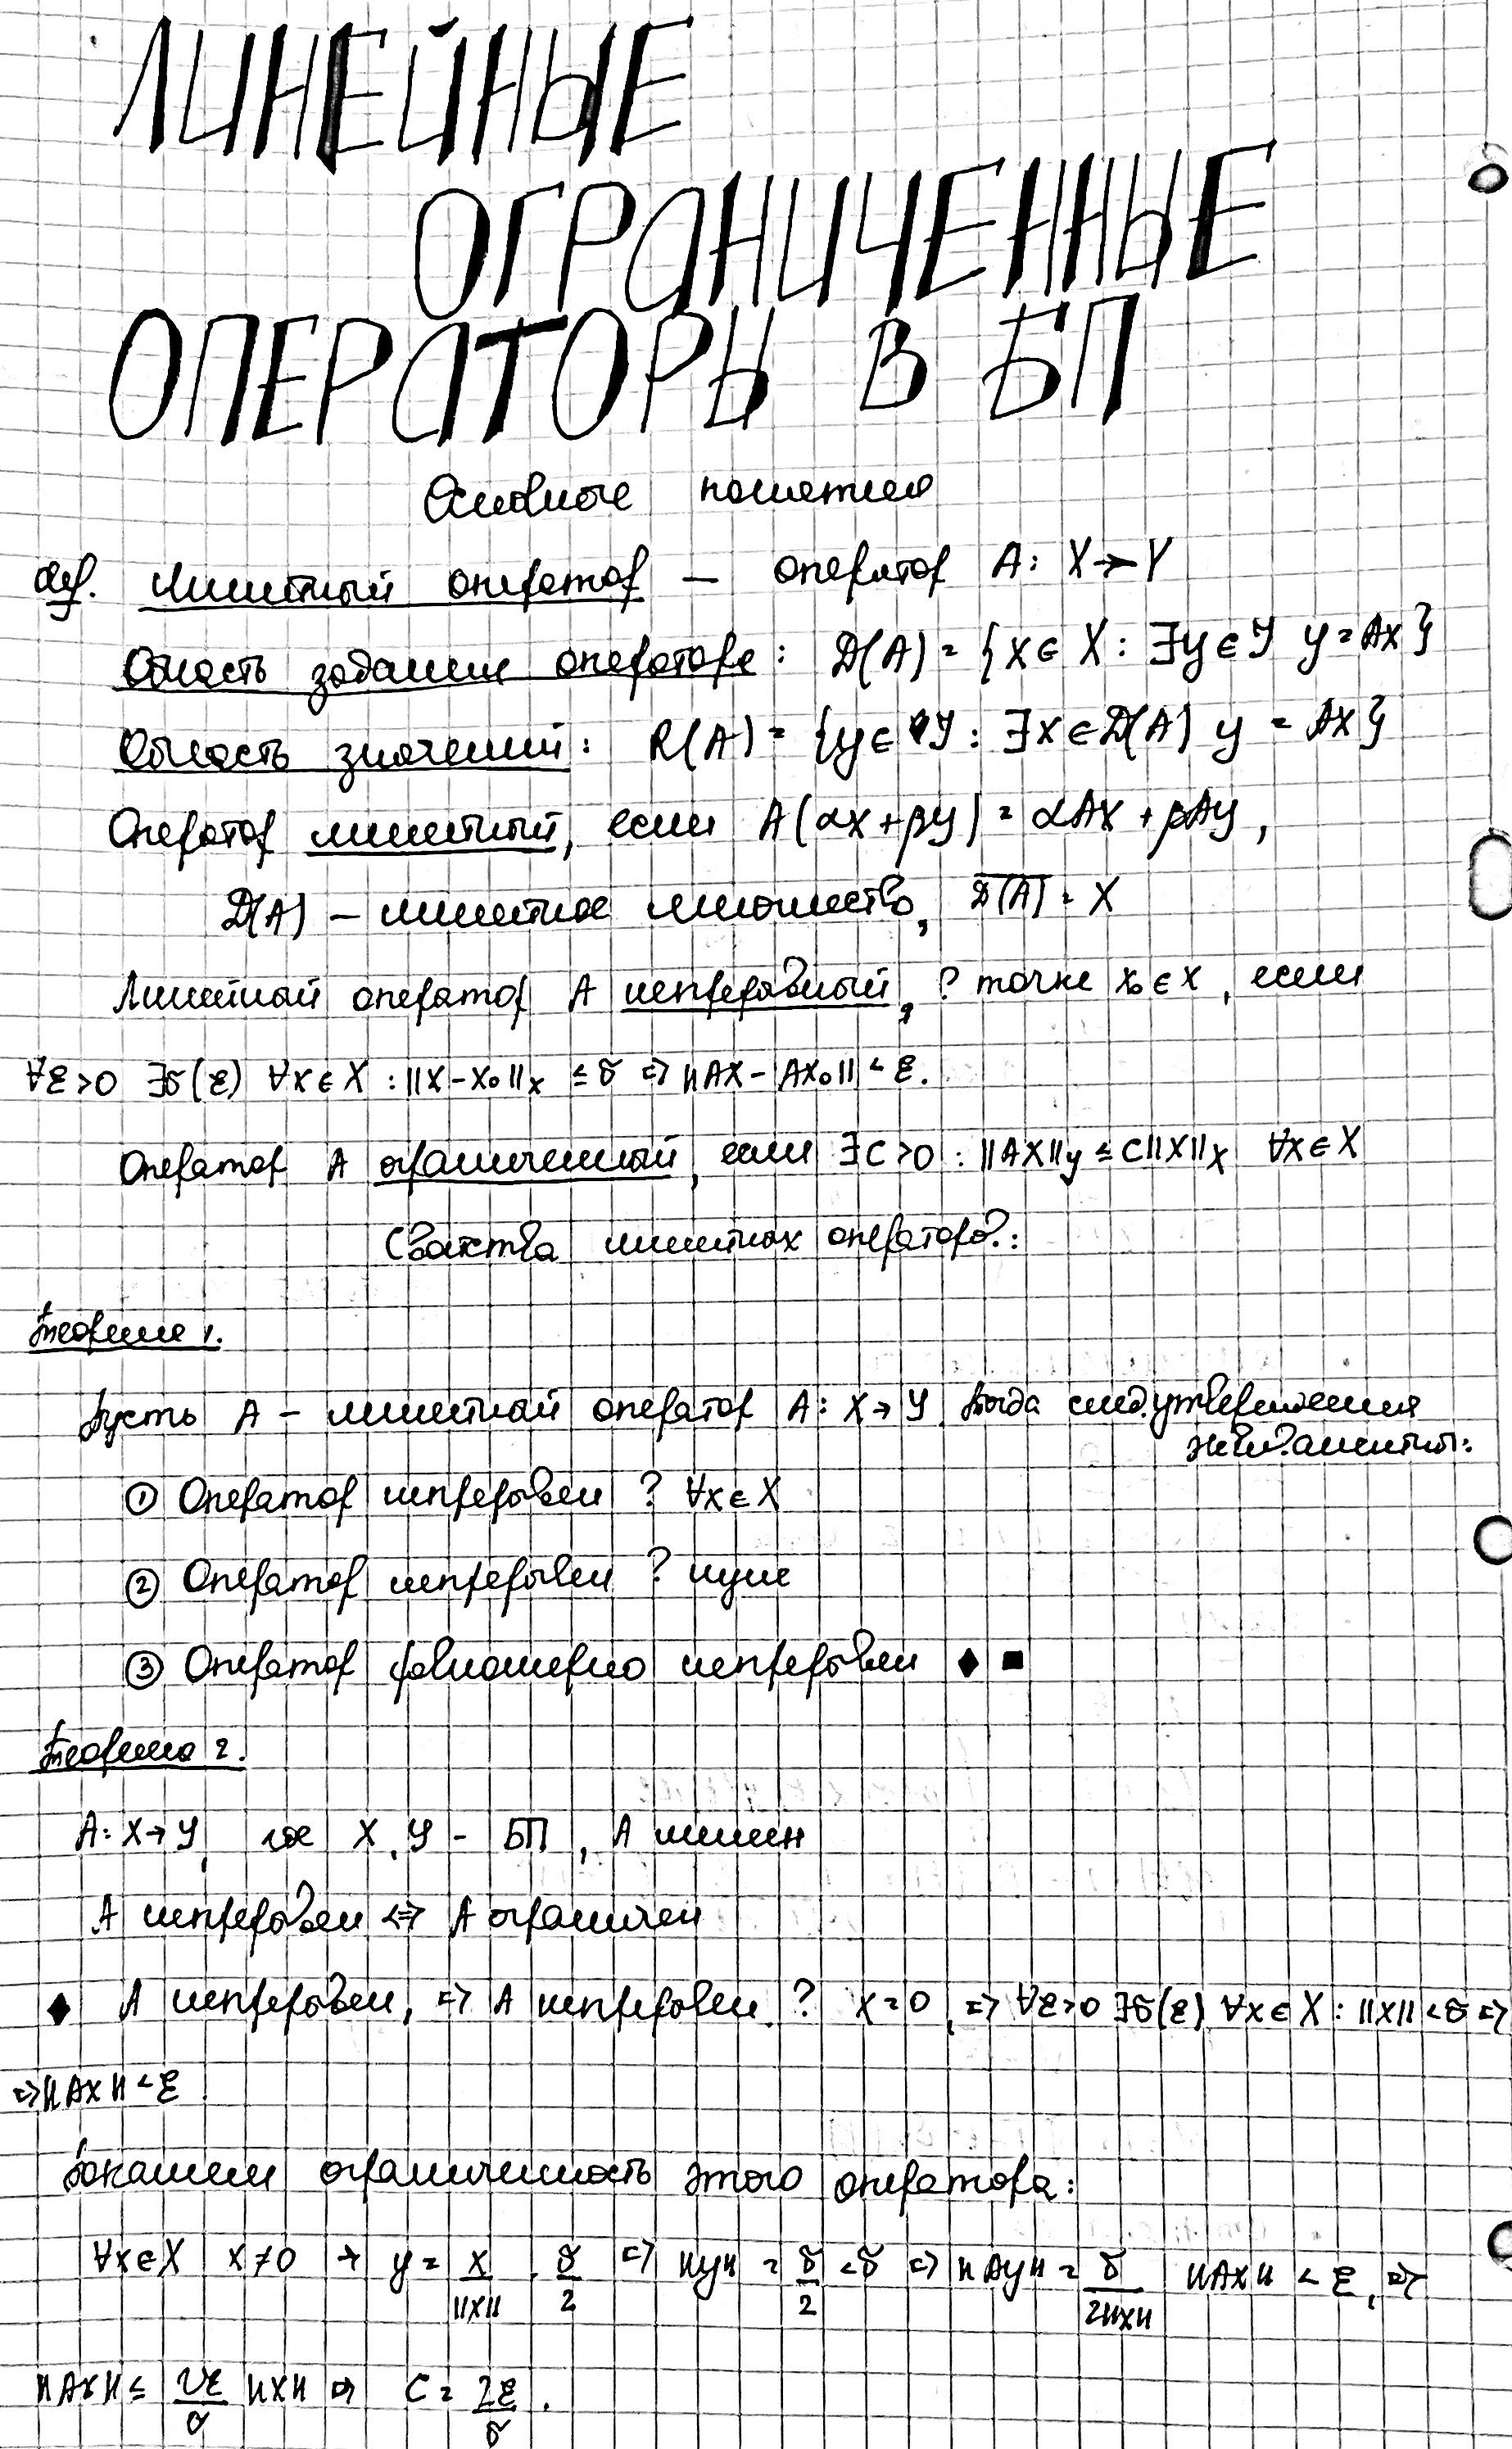 ЛИНЕЙНЫЕ
ОГРАНИЧЕННЫЕ
ОПЕРАТОРЫ В БП
Основные понятия
def. Линейный оператор — оператор A: X→Y
Область задания оператора: D(A) = {x ∈ X : ∃y ∈ Y y = Ax}
Область значений: R(A) = {y ∈ Y : ∃x ∈ D(A) y = Ax}
Оператор линейный, если A(αx + βy) = αAx + βAy,
D(A) – линейное множество, \overline{D(A)} = X
Линейный оператор A непрерывный, в точке x₀ ∈ X, если
∀ε>0 ∃δ(ε) ∀x ∈ X : ||x - x₀||ₓ ≤ δ ⇒ ||Ax - Ax₀|| < ε.
Оператор A ограниченный, если ∃C>0 : ||Ax||_y ≤ C||x||_X ∀x ∈ X
Свойства линейных операторов:
Теорема 1.
Пусть A – линейный оператор A: X→Y. Тогда след. утверждения
эквивалентны:
① Оператор непрерывен в ∀x ∈ X
② Оператор непрерывен в нуле
③ Оператор равномерно непрерывен ♦ ■
Теорема 2.
A: X→Y, где X, Y – БП, A линеен
A непрерывен ⇔ A ограничен
♦ A непрерывен, ⇒ A непрерывен в x=0, ⇒ ∀ε>0 ∃δ(ε) ∀x ∈ X : ||x|| < δ ⇒
⇒ ||Ax|| < ε
Покажем ограниченность этого оператора:
∀x ∈ X x≠0 → y = x/||x|| · δ/2 ⇒ ||y|| = δ/2 < δ ⇒ ||Ay|| = δ/(2||x||) ||Ax|| < ε, ⇒
||Ax|| ≤ 2ε/δ ||x|| ⇒ C = 2ε/δ.